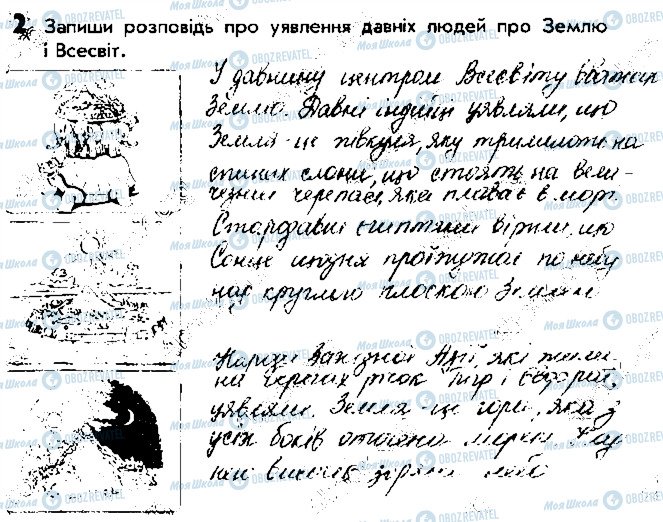 2 Запиши розповідь про уявлення давніх людей про Землю
і Всесвіт.
У давнину центром Всесвіту вважали
Землю. Давні індійці уявляли, що
Земля - це півкуля, яку тримають на
спинах слони, що стоять на вели-
чезній черепасі, яка плаває в морі.
Стародавні єгиптяни вірили, що
Сонце щодня проїжджає по небу
над круглою плоскою Землею
Народи Західної Азії, які жили
на берегах річок Тигр і Євфрат,
уявляли. Земля - це гора, яка з
усіх боків оточена морем. Над
ній висить зоряне небо